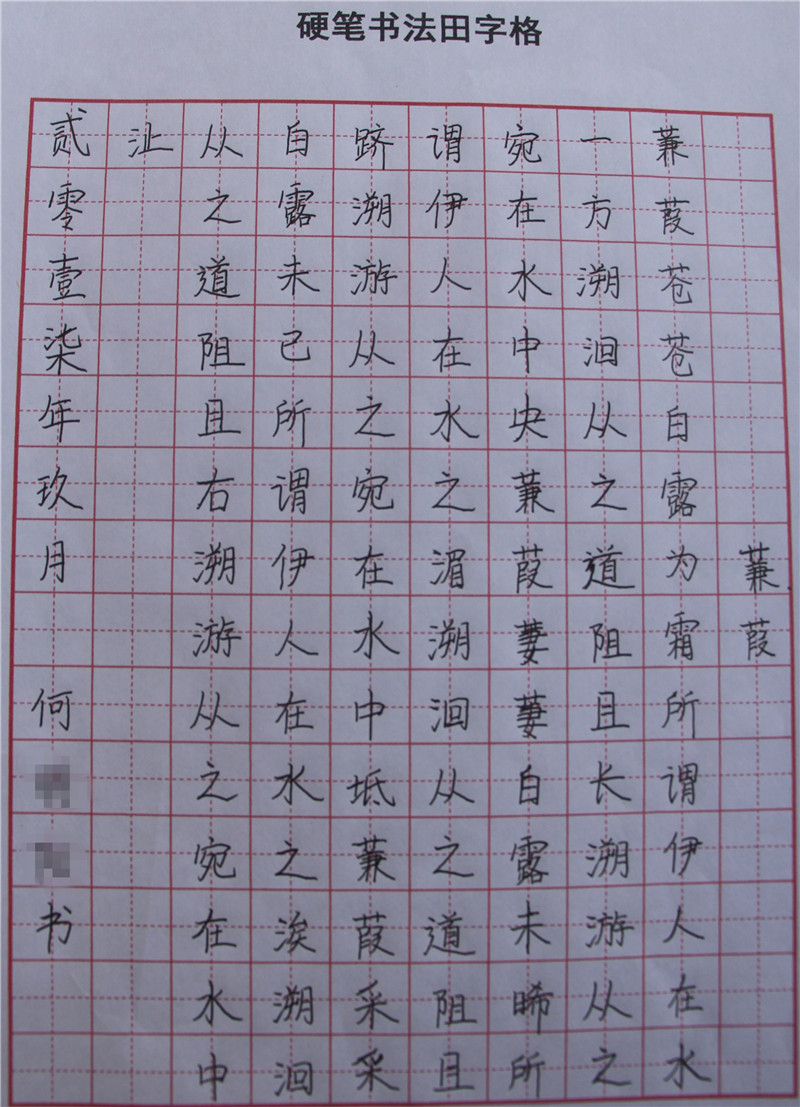 硬笔书法田字格
蒹葭
蒹葭苍苍白露为霜所谓伊人在水
一方溯洄从之道阻且长溯游从之
宛在水中央蒹葭萋萋白露未晞所
谓伊人在水之湄溯洄从之道阻且
跻溯游从之宛在水中坻蒹葭采采
白露未已所谓伊人在水之涘溯洄
从之道阻且右溯游从之宛在水中
沚
贰零壹柒年玖月 何 书